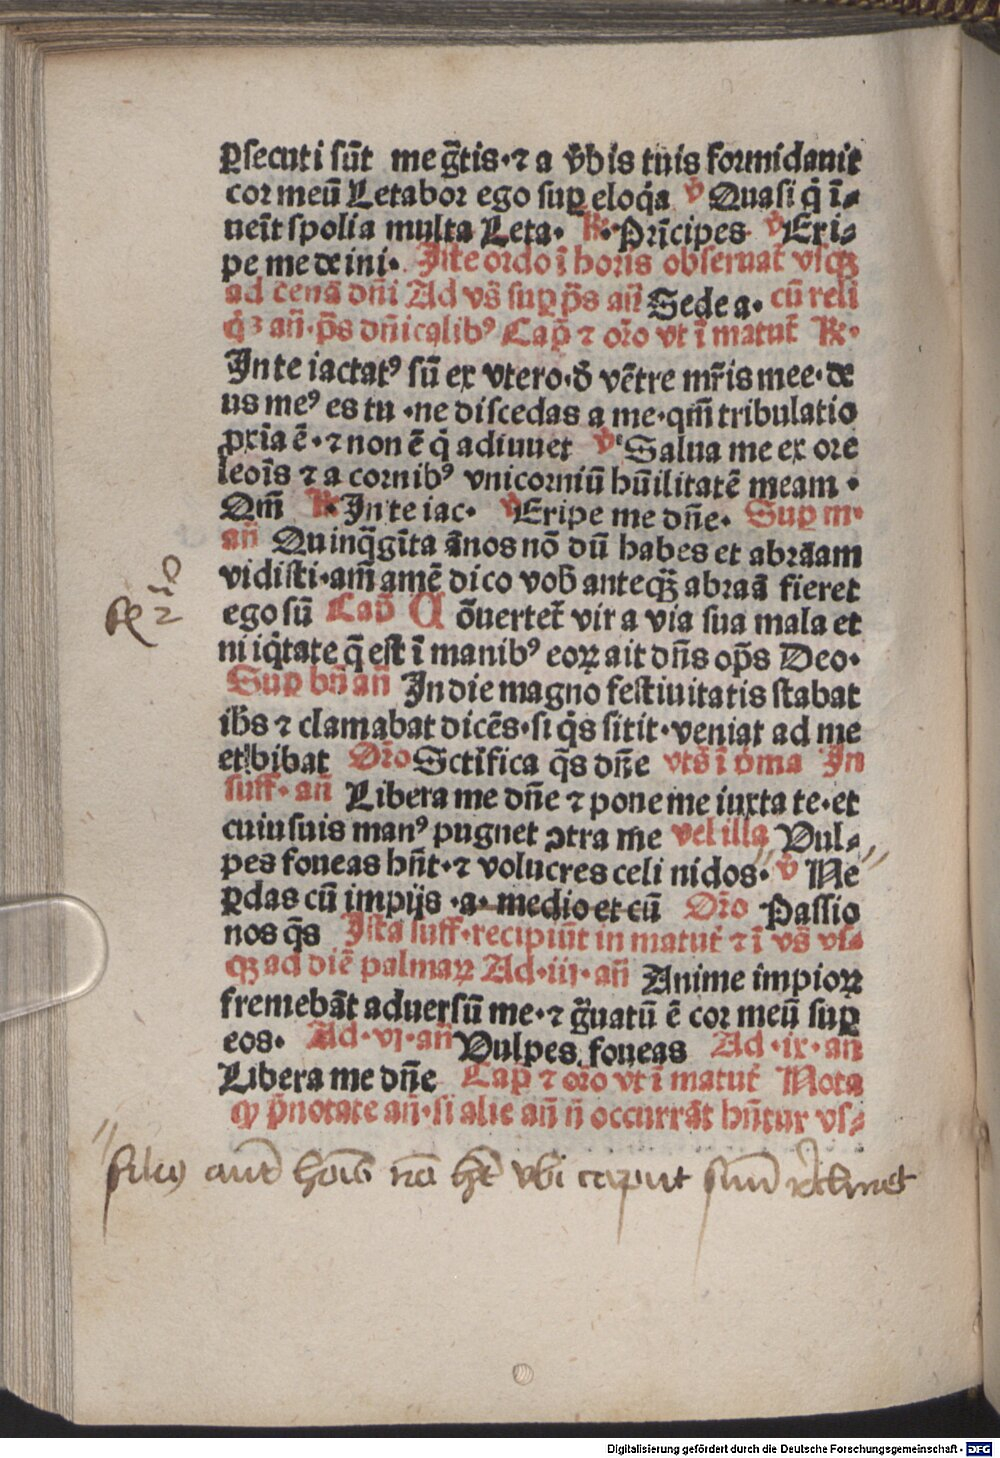 ꝑſecuti ſūt me g̃tis·⁊ a v̾bis tuis formidauit
cor meū Letabor ego ſuꝑ eloq̇a v̾ Quaſi q̇ ī⸗
ueīt ſpolia multa Leta· R̷·Prīcipes v̾ Eri⸗
pe me de ini· Iſte ordo ī horis obſeruat᷑ vſqꝫ
ad cenā dn̄i Ad vs̄ ſuꝑ p̄s an̄ Sede a· cū reli
q̇ꝫ an̄·p̄s dn̄icalibꝰ Cap̄ ⁊ or̄o vt ī matut᷑ R̷·
In te iactatꝰ ſū ex vtero·d̄ vētre mr̄is mee·de
us meꝰ es tu ·ne diſcedas a me·qm̄ tribulatio
ꝓxīa ē·⁊ non ē q̇ adiuuet v̾ Salua me ex ore
leoīs ⁊ a cornibꝰ vnicorniū hūilitatē meam·
Qm̄ R̷·In te iac· v̾ Eripe me dn̄e· Suꝑ m·
an̄ Quinq̄gīta ānos nō dū habes et abrāam
vidiſti·am̄ amē dico vob̄ anteqꝫ abraā fieret
ego ſū Cap̄ C ōuertet᷑ vir a via ſua mala et
ni iq̇tate q̄ eſt ī manibꝰ eoꝝ ait dn̄s op̄s Deo·
Suꝑ bn̄ an̄ In die magno feſtiuitatis ſtabat
ih̄s ⁊ clamabat dicēs·ſi q̇s ſitit·veniat ad me
et bibat Or̄o Sctīfica q̄s dn̄e vts̄ ī p̄ma In
ſuff·an̄ Libera me dn̄e ⁊ pone me iuxta te·et
cuiuſuis manꝰ pugnet ꝯtra me vel illa Vul⸗
pes foueas hn̄t·⁊ volucres celi nidos· v̾ Ne
ꝑdas cū impijs ·a· medio et cū Or̄o Paſſio
nos q̄s Iſta ſuff·recipiūt in matut᷑ ⁊ ī vs̄ vſ⸗
qꝫ ad diē palmaꝝ Ad·iij·an̄ Anime impioꝝ
fremebāt aduerſū me·⁊ g̃uatū ē cor meū ſuꝑ
eos· Ad·vj·an̄ Vulpes foueas Ad·ix·an̄
Libera me dn̄e Cap̄ ⁊ or̄o vt ī matut᷑ Nota
ꝙ p̄notate an̄·ſi alie an̄ n̄ occurrāt hn̄tur vſ⸗
filiꝰ aut̄ hoīs nō h̄t vbi caput ſuū reclinet